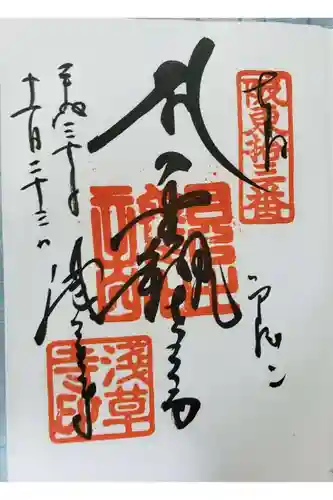 奉拝
坂東拾三番
聖観世音
浅草寺
浅草寺印
平成三十年
十一月二十三日